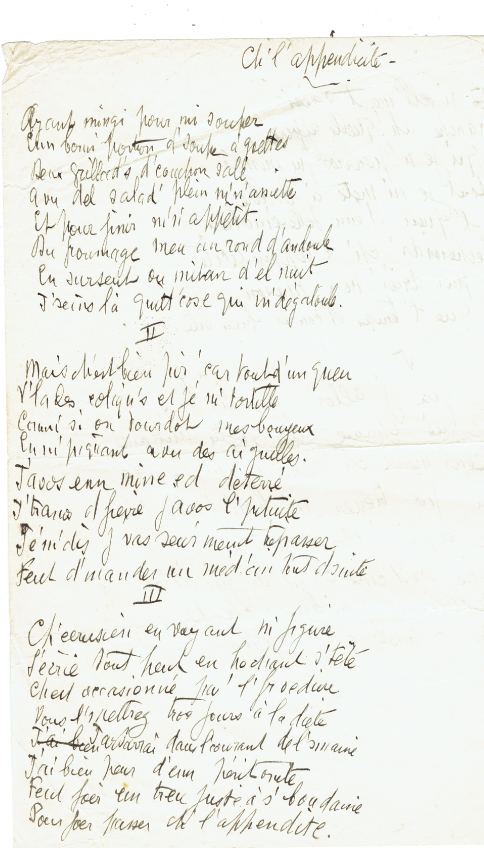 Ch' l'appendicite -
Ayant mingi pour mi souper
Enn bonn' portion d'soupe à guettes
Deux gaillards d'couchon salé
avu del salad' plein m'n'assiette
Et pour finir m'n'appétit.
Du froumage meu un rond d'andoule
En sursent ou mitan d'el nuit
J'seins là quett'cose qui m'dégaloule.
II
Mais ch'est bien pir' car tout d'un queu
V'la des coliqu's et j'é m'tortille
Comm' si on tourdot mes bouyeux
En m'piquant avu des aiguilles.
J'avos enn mine ed déterré
J'tranns d'fièvre j'avos l'pituite
Jé m'dis j'vas seur'ment trépasser
Feut d'mander un méd'cin tout d'suite
III
Ch'cerusien en voyant m'figure
S'écrie tout heut en hochant s'tête
Chest occasionné par l'froedure
Vous l'mettrez tros jours à la diète
J'ai bien J'arvarrai dans l'courant del s'maine
J'ai bien peur d'enn péritonite
Feut foér un treu juste à s'boudaine
Pour foér passer ch'l'appendite.